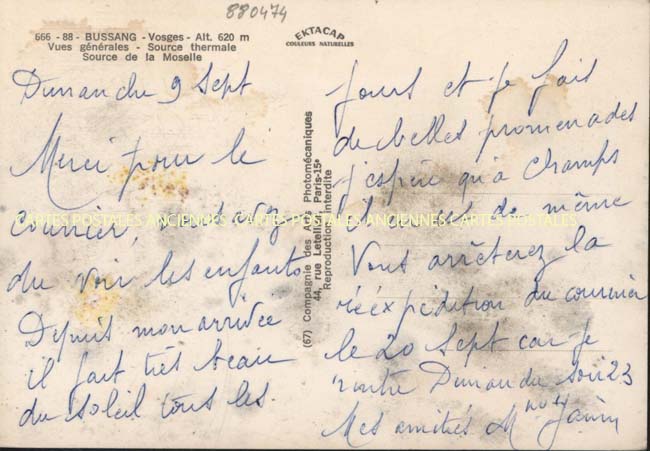 880474
666 - 88 - BUSSANG - Vosges - Alt. 620 m
Vues générales - Source thermale
Source de la Moselle
EKTACAP
COULEURS NATURELLES
Dimanche 9 Sept
Merci pour le
courrier, avez
du voir les enfants
Depuis mon arrivée
il fait très beau
du soleil tous les
(67) Compagnie des Arts Photomécaniques
44, rue Letellier, Paris-15e
Reproduction interdite
jours et je fais
de belles promenades
j'espère qu'à Champs
de même
Vous arrêterez la
réexpédition du courrier
le 20 Sept car je
rentre Dimanche soir 23
Mes amitiés
CARTES POSTALES ANCIENNES CARTES POSTALES ANCIENNES CARTES POSTALES